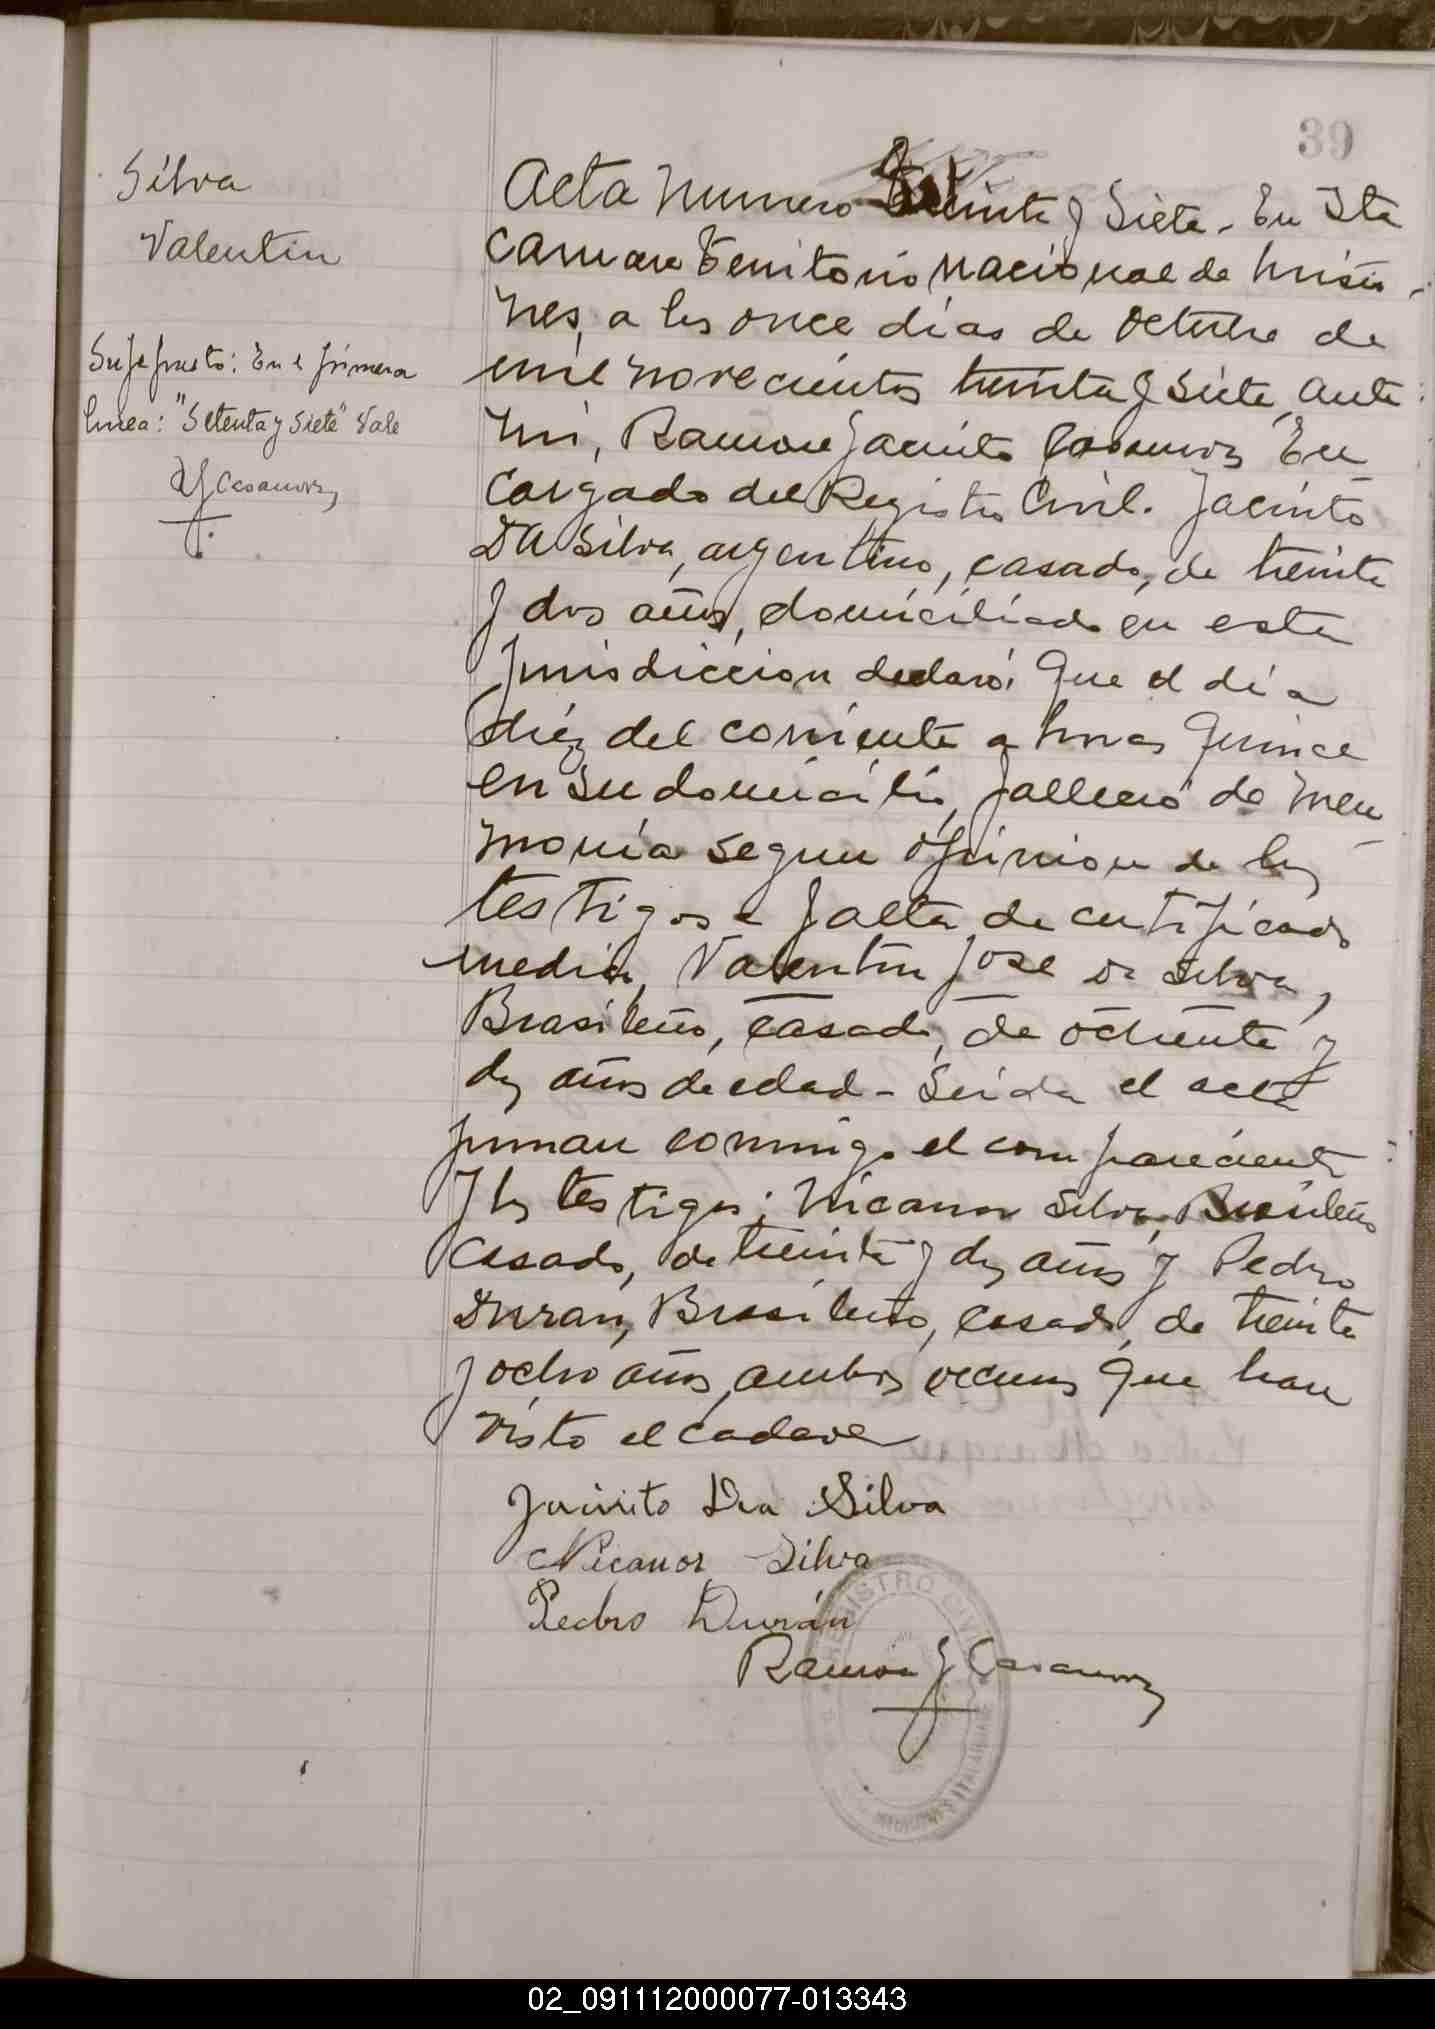 39
Silva
Valentin
Superpuesto: En la primera
linea: "Setenta y Siete" Vale
RJCasanova
Acta Numero Setenta y Siete. En Ita
caruare Territorio Nacional de Misio
nes, a los once días de Octubre de
mil novecientos treinta y siete, ante
mi, Ramon Jacinto Casanova En
cargado del Registro Civil. Jacinto
Da Silva, argentino, casado, de treinta
y dos años, domiciliado en esta
Jurisdiccion declaró: Que el día
diez del corriente a horas quince
en su domicilio, falleció de neu
monía segun opinion de los
testigos a falta de certificado
medico, Valentin Jose da Silva,
Brasileño, casado, de ochenta y
dos años de edad - Leida el acta
firman conmigo el compareciente
y los testigos; Nicanor Silva, Brasileño
casado, de treinta y dos años y Pedro
Duran, Brasileño, casado, de treinta
y ocho años, ambos vecinos que han
visto el cadaver
Jacinto Da Silva
Nicanor Silva
Pedro Durán
Ramon J Casanova
REGISTRO CIVIL
MISIONES ITACARUARE
02_091112000077-013343